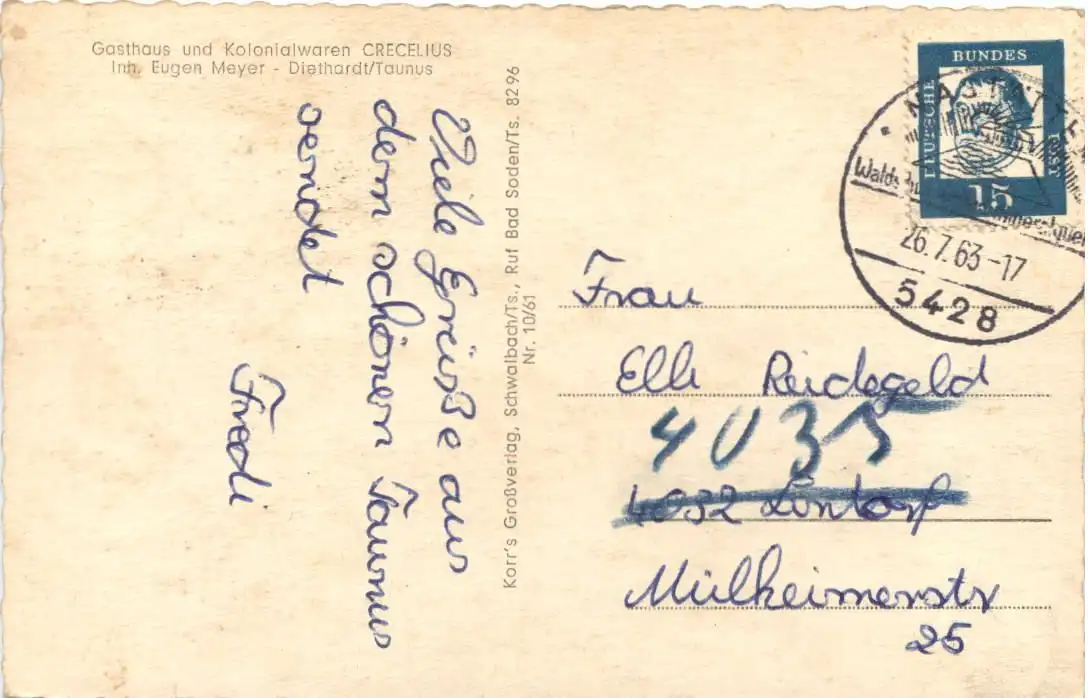 Gasthaus und Kolonialwaren CRECELIUS
Inh. Eugen Meyer - Diethardt/Taunus
Viele Grüße aus
dem schönen Taunus
sendet
Fredi
Korr's Großverlag, Schwalbach/Ts., Ruf Bad Soden/Ts. 8296
Nr. 10/61
DEUTSCHE
BUNDES
POST
15
NASTÄTTEN
26.7.63-17
5428
Frau
Elli Reidegeld
4035
4032 Lintorf
Mülheimerstr
25